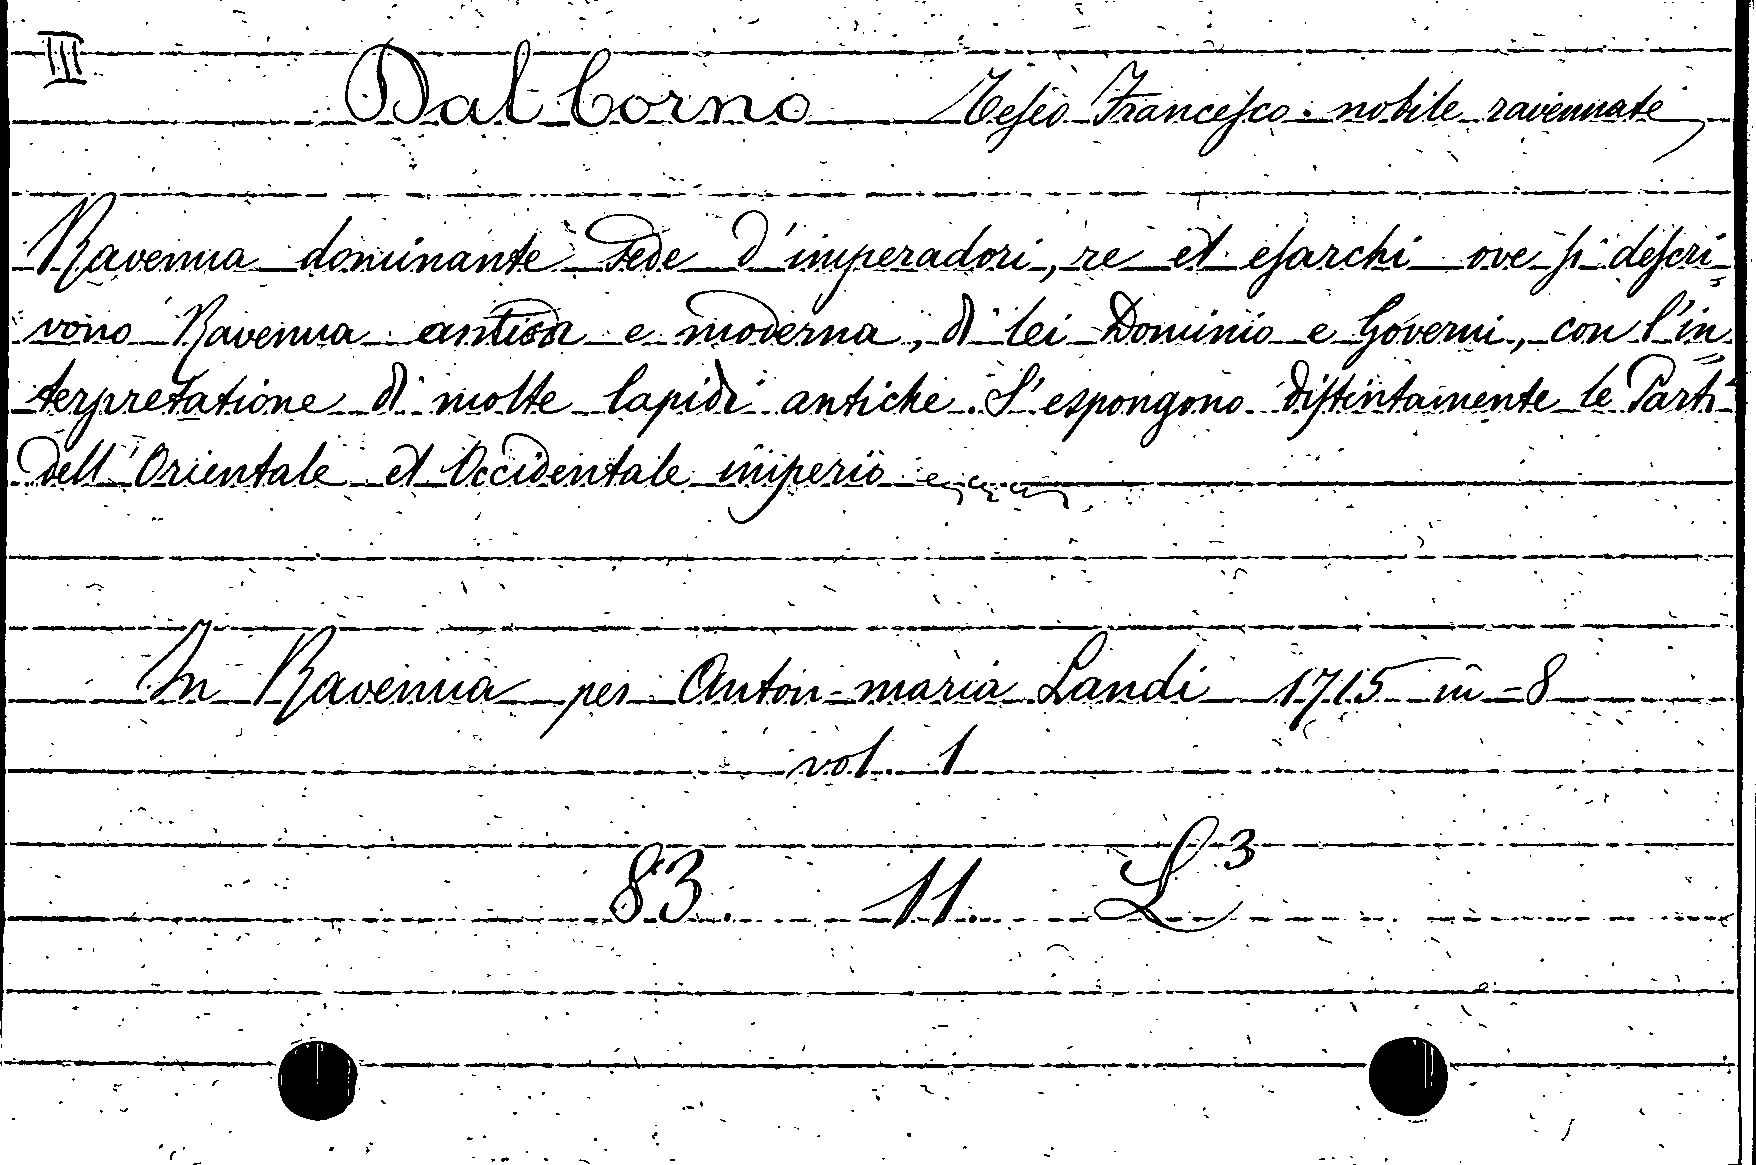 III
Dal Corno Teseo Francesco. nobile ravennate
Ravenna dominante sede d'imperadori, re et esarchi ove si descri-
vono Ravenna antica e moderna, di lei Dominio e Governi, con l'in=
terpretatione di molte lapidi antiche. S'espongono distintamente le Parti
dell'Orientale et Occidentale imperio
In Ravenna per Anton-maria Landi 1715 in-8
vol. 1
83. 11. L³